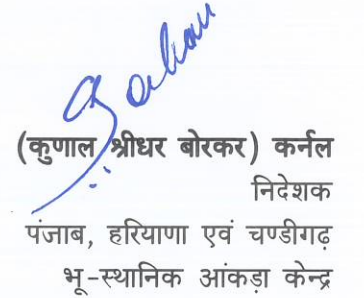 (कुणाल श्रीधर बोरकर) कर्नल
निदेशक
पंजाब, हरियाणा एवं चण्डीगढ़
भू-स्थानिक आंकड़ा केन्द्र